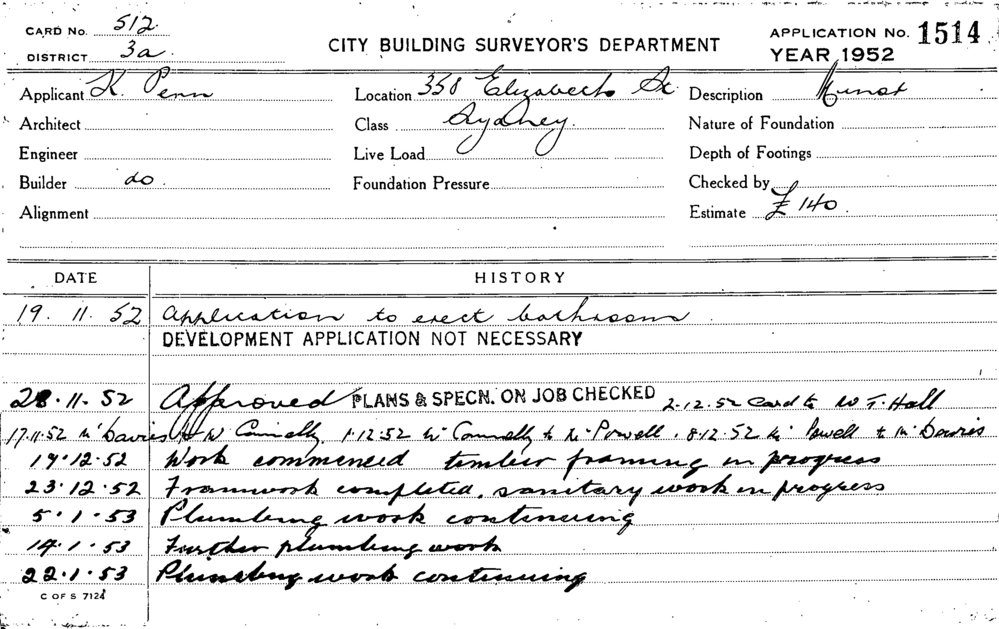 CARD No. 512
DISTRICT 3a
CITY BUILDING SURVEYOR'S DEPARTMENT
APPLICATION No. 1514
YEAR 1952
Applicant K. Penn
Location 358 Elizabeth St
Description
Architect
Class Sydney.
Nature of Foundation
Engineer
Live Load
Depth of Footings
Builder do.
Foundation Pressure
Checked by
Alignment
Estimate £ 140.
DATE HISTORY
19. 11. 52 Application to erect bathroom.
DEVELOPMENT APPLICATION NOT NECESSARY
28.11.52 Approved PLANS & SPECN. ON JOB CHECKED 2.12.52 Card to W. F. Hall
17.11.52 Mr Davies to Mr Connelly. 1.12.52 Mr Connelly to Mr Powell. 8.12.52 Mr Powell to Mr Davies
19.12.52 Work commenced timber framing in progress
23.12.52 Framwork completed, sanitary work in progress
5.1.53 Plumbing work continuing
14.1.53 Further plumbing work
22.1.53 Plumbing work continuing
C OF S 7124